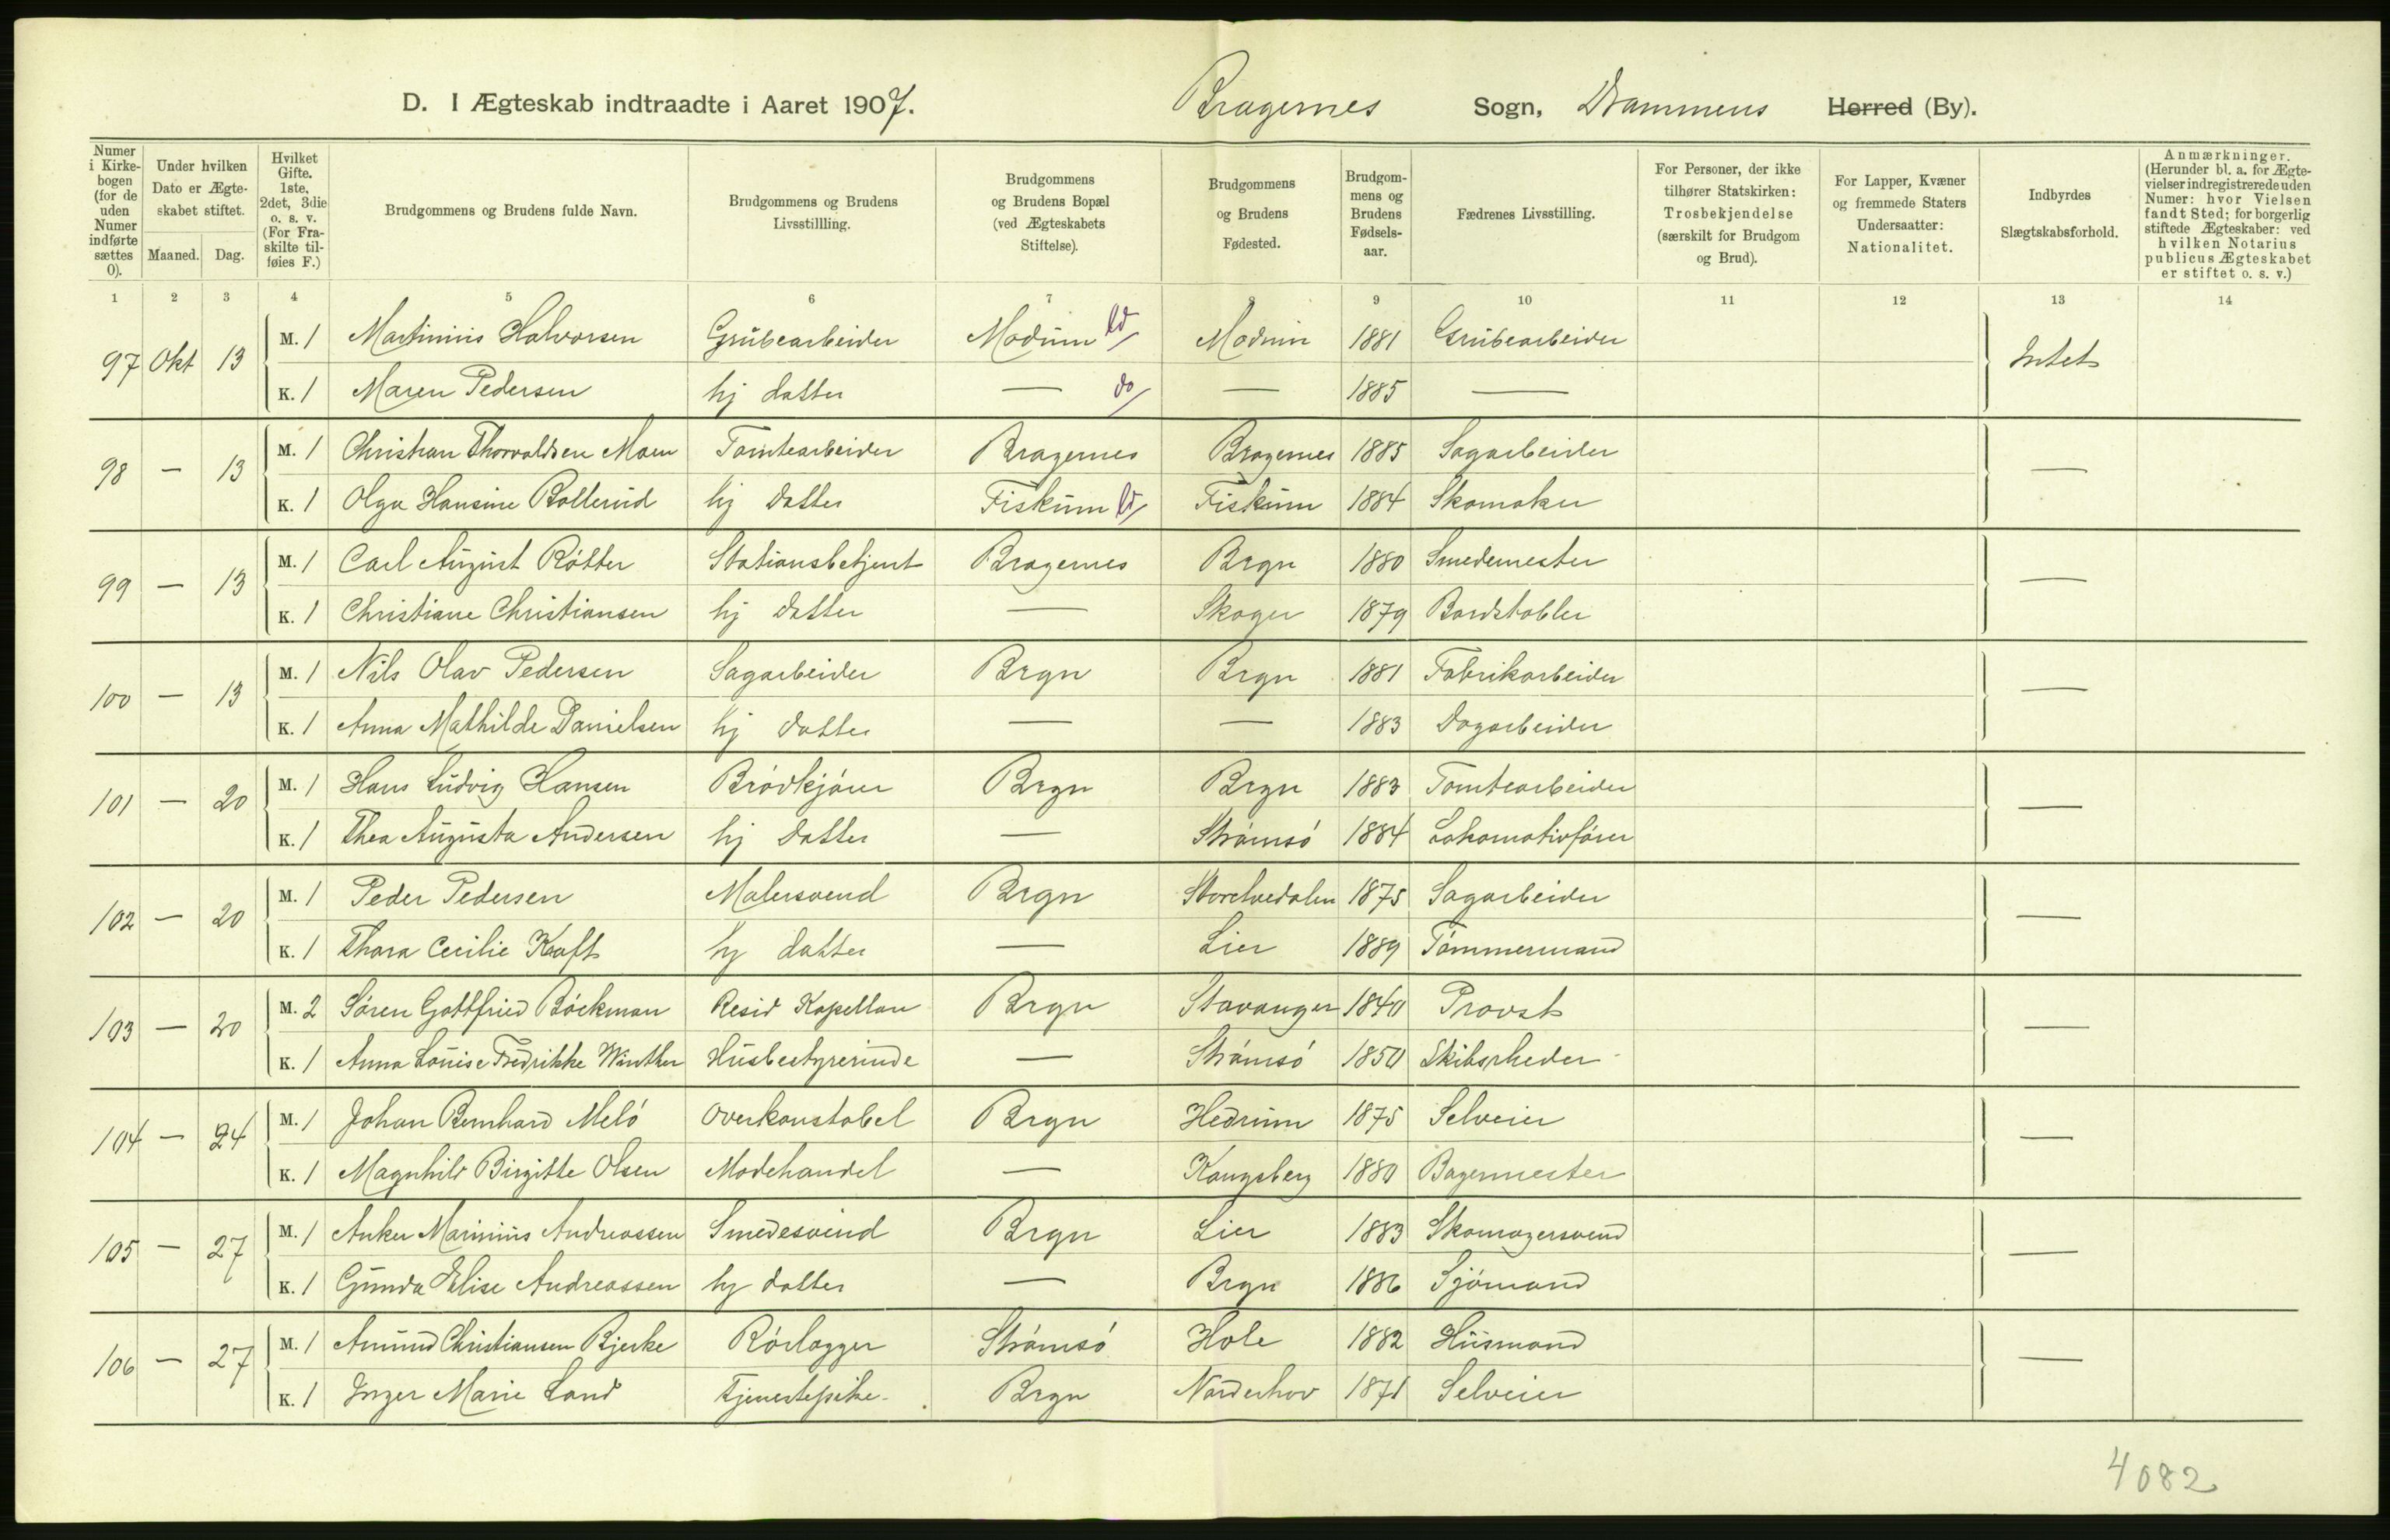 D. I Ægteskab indtraadte i Aaret 1907. Bragernes Sogn, Drammens Herred (By).
Numer i Kirkebogen (for de uden Numer indførte sættes 0).
Under hvilken Dato er Ægteskabet stiftet.
Maaned. Dag.
Hvilket Gifte. 1ste, 2det, 3die o. s. v. (For Fraskilte tilføies F.)
Brudgommens og Brudens fulde Navn.
Brudgommens og Brudens Livsstillling.
Brudgommens og Brudens Bopæl (ved Ægteskabets Stiftelse).
Brudgommens og Brudens Fødested.
Brudgommens og Brudens Fødselsaar.
Fædrenes Livsstilling.
For Personer, der ikke tilhører Statskirken: Trosbekjendelse (særskilt for Brudgom og Brud).
For Lapper, Kvæner og fremmede Staters Undersaatter: Nationalitet.
Indbyrdes Slægtskabsforhold.
Anmærkninger. (Herunder bl. a. for Ægtevielser indregistrerede uden Numer: hvor Vielsen fandt Sted; for borgerlig stiftede Ægteskaber: ved hvilken Notarius publicus Ægteskabet er stiftet o. s. v.)
1 2 3 4 5 6 7 8 9 10 11 12 13 14
97 Okt 13 M. 1 Martinius Halvorsen Grubearbeider Modum ld Modum 1881 Grubearbeider Intet
K. 1 Maren Pedersen hj datter — do — 1885 —
98 — 13 M. 1 Christian Thorvaldsen Moen Tomtearbeider Bragernes Bragernes 1885 Sagarbeider —
K. 1 Olga Hansine Bollerud hj datter Fiskum ld Fiskum 1884 Skomaker
99 — 13 M. 1 Carl August Rötter Stationsbetjent Bragernes Brgn 1880 Smedemester —
K. 1 Christiane Christiansen hj datter — Skoger 1879 Bordstabler
100 — 13 M. 1 Nils Olav Pedersen Sagarbeider Brgn Brgn 1881 Fabrikarbeider —
K. 1 Anna Mathilde Danielsen hj datter — — 1883 Dagarbeider
101 — 20 M. 1 Hans Ludvig Hansen Brödkjörer Brgn Brgn 1883 Tomtearbeider —
K. 1 Thea Augusta Andersen hj datter — Strömsö 1884 Lokomotivförer
102 — 20 M. 1 Peder Pedersen Malersvend Brgn Storelvedalen 1875 Sagarbeider —
K. 1 Thora Cecilie Kraft hj datter — Lier 1889 Tömmermand
103 — 20 M. 2 Sören Gottfried Böckman Resid Kapellan Brgn Stavanger 1840 Provst —
K. 1 Anna Louise Fredrikke Winther Husbestyrerinde — Strömsö 1850 Skibsrheder
104 — 24 M. 1 Johan Bernhard Melö Overkonstabel Brgn Hedrum 1875 Selveier —
K. 1 Magnhild Birgitte Olsen Modehandel — Kongsberg 1880 Bagermester
105 — 27 M. 1 Anker Marinius Andreassen Smedesvend Brgn Lier 1883 Skomagersvend —
K. 1 Gunda Elise Andreassen hj datter — Brgn 1886 Sjömand
106 — 27 M. 1 Amund Christiansen Bjerke Rörlægger Strömsö Hole 1882 Husmand —
K. 1 Inger Marie Lund Tjenestepike Brgn Norderhov 1871 Selveier
4082